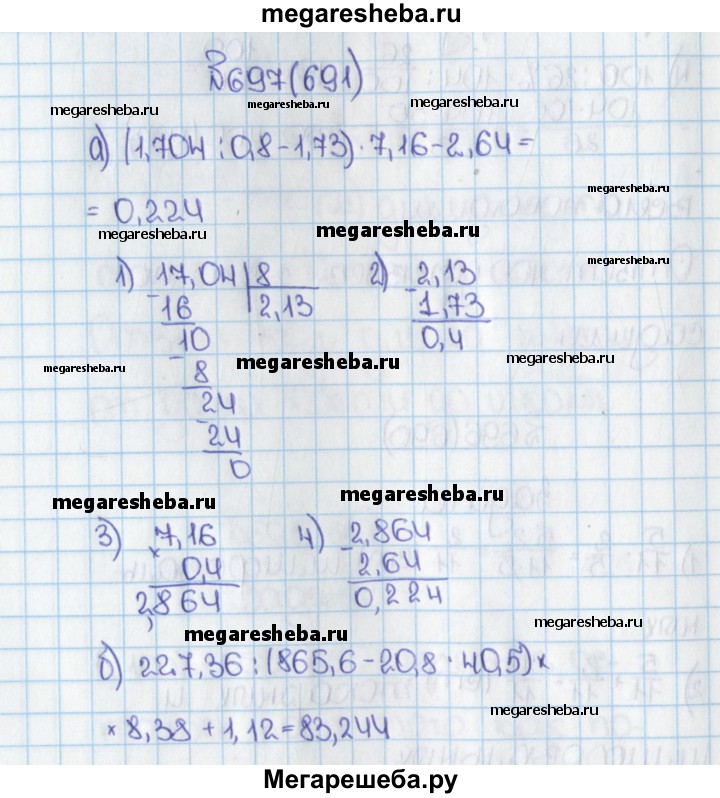 megaresheba.ru
№697(691)
megaresheba.ru megaresheba.ru megaresheba.ru
а) (1,704 : 0,8 - 1,73) · 7,16 - 2,64 =
megaresheba.ru
= 0,224
megaresheba.ru megaresheba.ru
megaresheba.ru
1) 17,04 | 8
- 16 2,13
10
- 8
24
- 24
0
2) - 2,13
1,73
0,4
megaresheba.ru megaresheba.ru megaresheba.ru
megaresheba.ru megaresheba.ru
3) × 7,16
0,4
2,864
4) - 2,864
2,64
0,224
megaresheba.ru megaresheba.ru
б) 227,36 : (865,6 - 20,8 · 40,5) ×
megaresheba.ru
× 8,38 + 1,12 = 83,244
Мегарешеба.ру